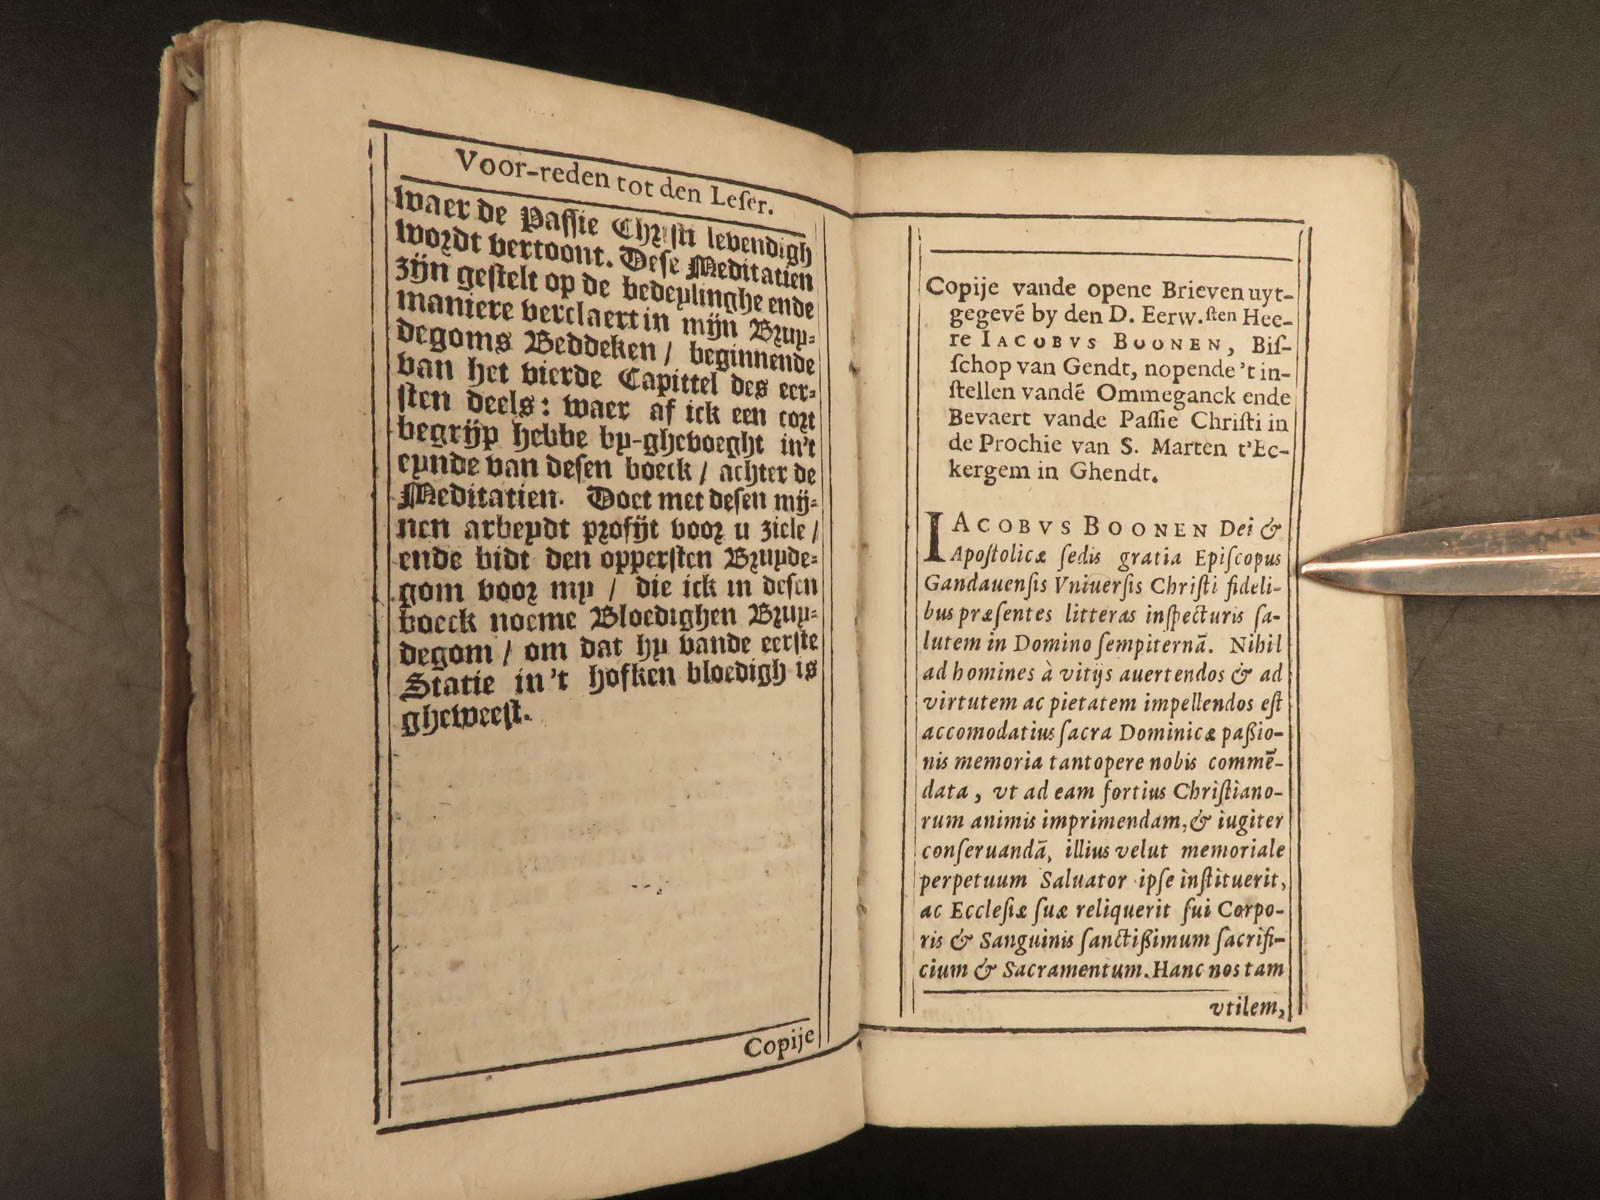 Voor-reden tot den Leſer.
waer de Paſſie Chꝛiſti levendigh
woꝛdt vertoont. Deſe Meditatien
zijn geſtelt op de bedeylinghe ende
maniere verclaert in mijn Bꝛuy⸗
degoms Beddeken / beginnende
van het vierde Capittel des eer⸗
ſten deels: waer af ick een coꝛt
begrijp hebbe by-ghevoeght in't
eynde van deſen boeck / achter de
Meditatien. Doet met deſen mij⸗
nen arbeydt pꝛofijt vooꝛ u ziele /
ende bidt den opperſten Bꝛuyde⸗
gom vooꝛ my / die ick in deſen
boeck noeme Bloedighen Bꝛuy⸗
degom / om dat hy vande eerſte
Statie in't hofken bloedigh is
gheweeſt.
Copije
Copije vande opene Brieven uyt-
gegevē by den D. Eerw.ſten Hee-
re IACOBVS BOONEN, Biſ-
ſchop van Gendt, nopende 't in-
ſtellen vandē Ommeganck ende
Bevaert vande Paſſie Chriſti in
de Prochie van S. Marten t'Ec-
kergem in Ghendt.
IACOBVS BOONEN Dei &
Apoſtolicæ ſedis gratia Epiſcopus
Gandauenſis Vniuerſis Chriſti fideli-
bus præſentes litteras inſpecturis ſa-
lutem in Domino ſempiternā. Nihil
ad homines à vitijs auertendos & ad
virtutem ac pietatem impellendos eſt
accomodatius ſacra Dominicæ paßio-
nis memoria tantopere nobis commē-
data, vt ad eam fortius Chriſtiano-
rum animis imprimendam, & iugiter
conſeruandā, illius velut memoriale
perpetuum Saluator ipſe inſtituerit,
ac Eccleſiæ ſuæ reliquerit ſui Corpo-
ris & Sanguinis ſanctißimum ſacrifi-
cium & Sacramentum. Hanc nos tam
vtilem,